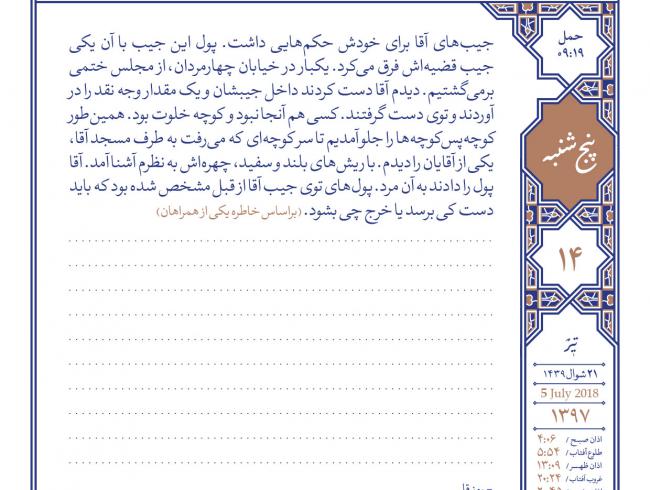 جیب‌های آقا برای خودش حکم‌هایی داشت. پول این جیب با آن یکی
جیب قضیه‌اش فرق می‌کرد. یکبار در خیابان چهارمردان، از مجلس ختمی
برمی‌گشتیم. دیدم آقا دست کردند داخل جیبشان و یک مقدار وجه نقد را در
آوردند و توی دست گرفتند. کسی هم آنجا نبود و کوچه خلوت بود. همین‌طور
کوچه پس‌کوچه‌ها را جلو آمدیم تا سر کوچه‌ای که می‌رفت به طرف مسجد آقا،
یکی از آقایان را دیدم. با ریش‌های بلند و سفید، چهره‌اش به نظرم آشنا آمد. آقا
پول را دادند به آن مرد. پول‌های توی جیب آقا از قبل مشخص شده بود که باید
دست کی برسد یا خرج چی بشود. (براساس خاطره یکی از همراهان)
حمل
۰۹:۱۹
پنج شنبه
۱۴
تیر
۲۱ شوال ۱۴۳۹
5 July 2018
۱۳۹۷
اذان صبح / ۴:۰۶
طلوع آفتاب / ۵:۵۴
اذان ظهر / ۱۳:۰۹
غروب آفتاب / ۲۰:۲۴